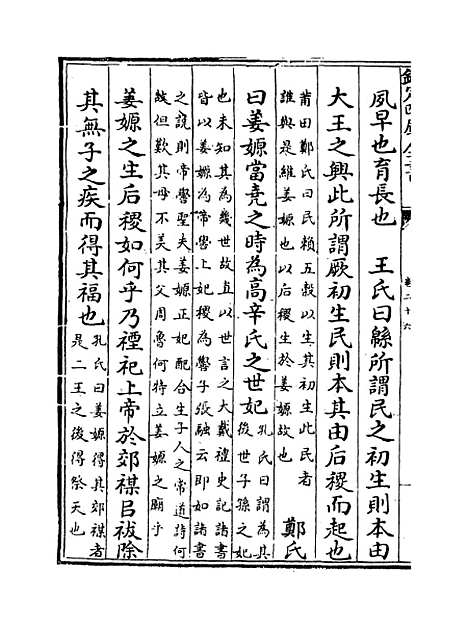 夙早也育長也　王氏曰緜所謂民之初生則本由
大王之興此所謂厥初生民則本其由后稷而起也
莆田鄭氏曰民賴五穀以生其初生此民者
誰與是維姜嫄也以后稷生於姜嫄故也
鄭氏
曰姜嫄當堯之時為高辛氏之世妃
孔氏曰謂為其
後世子孫之妃
也未知其為幾世故直以世言之大戴禮史記諸書
皆以姜嫄為帝嚳上妃稷為嚳子張融云即如諸書
之說則帝嚳聖夫姜嫄正妃配合生子人之常道詩何
故但歎其母不美其父周魯何特立姜嫄之廟乎
姜嫄之生后稷如何乎乃禋祀上帝於郊禖㠯祓除
其無子之疾而得其福也
孔氏曰姜嫄得其郊禖者
是二王之後得祭天也